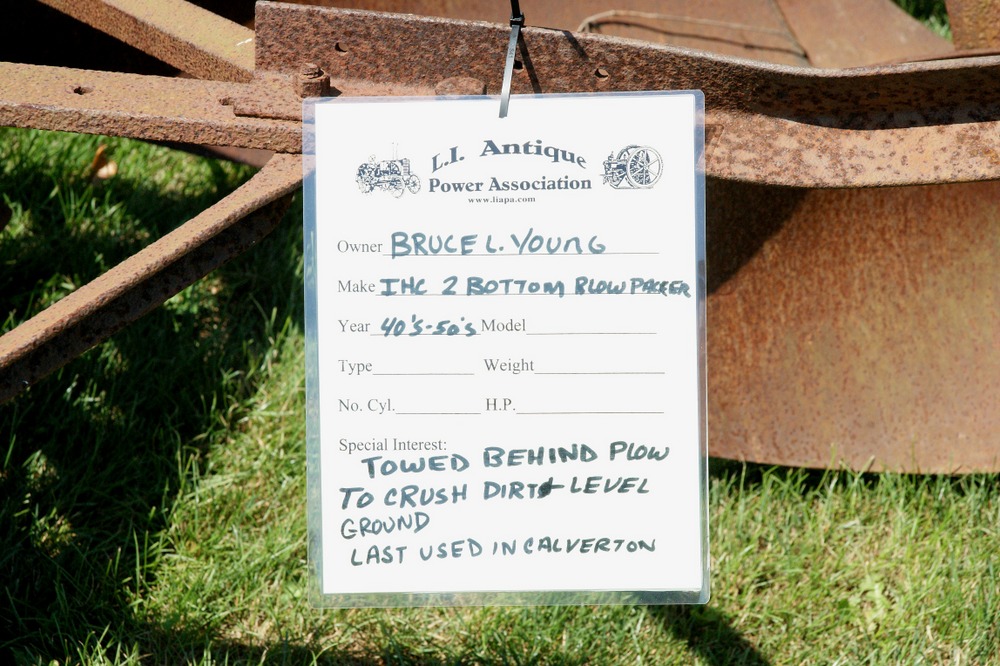 L.I. Antique
Power Association
www.liapa.com
Owner BRUCE L. YOUNG
Make IHC 2 BOTTOM BLOW PACKER
Year 40's-50's Model
Type Weight
No. Cyl. H.P.
Special Interest:
TOWED BEHIND PLOW
TO CRUSH DIRT + LEVEL
GROUND
LAST USED IN CALVERTON